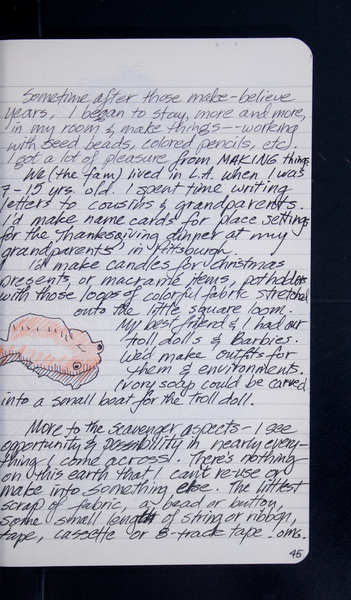 Sometime after those make-believe
years, I began to stay, more and more,
in my room & make things -- working
with seed beads, colored pencils, etc.
I got a lot of pleasure from MAKING things.
We (the fam) lived in L.A. when I was
7-15 yrs. old. I spent time writing
letters to cousins & grandparents.
I'd make name cards for place settings
for the Thanksgiving dinner at my
grandparents' in Pittsburgh.
I'd make candles for Christmas
presents, or macramé items, potholders
with those loops of colorful fabric stretched
onto the little square loom.
My best friend & I had our
troll dolls & Barbies.
We'd make outfits for
them & environments.
Ivory soap could be carved
into a small boat for the troll doll.
More to the scavenger aspects - I see
opportunity & possibility in nearly every-
thing I come across. There's nothing
on this earth that I can't re-use or
make into something else. The littlest
scrap of fabric, a bead or button,
some small length of string or ribbon,
tape, cassette or 8-track tape
45